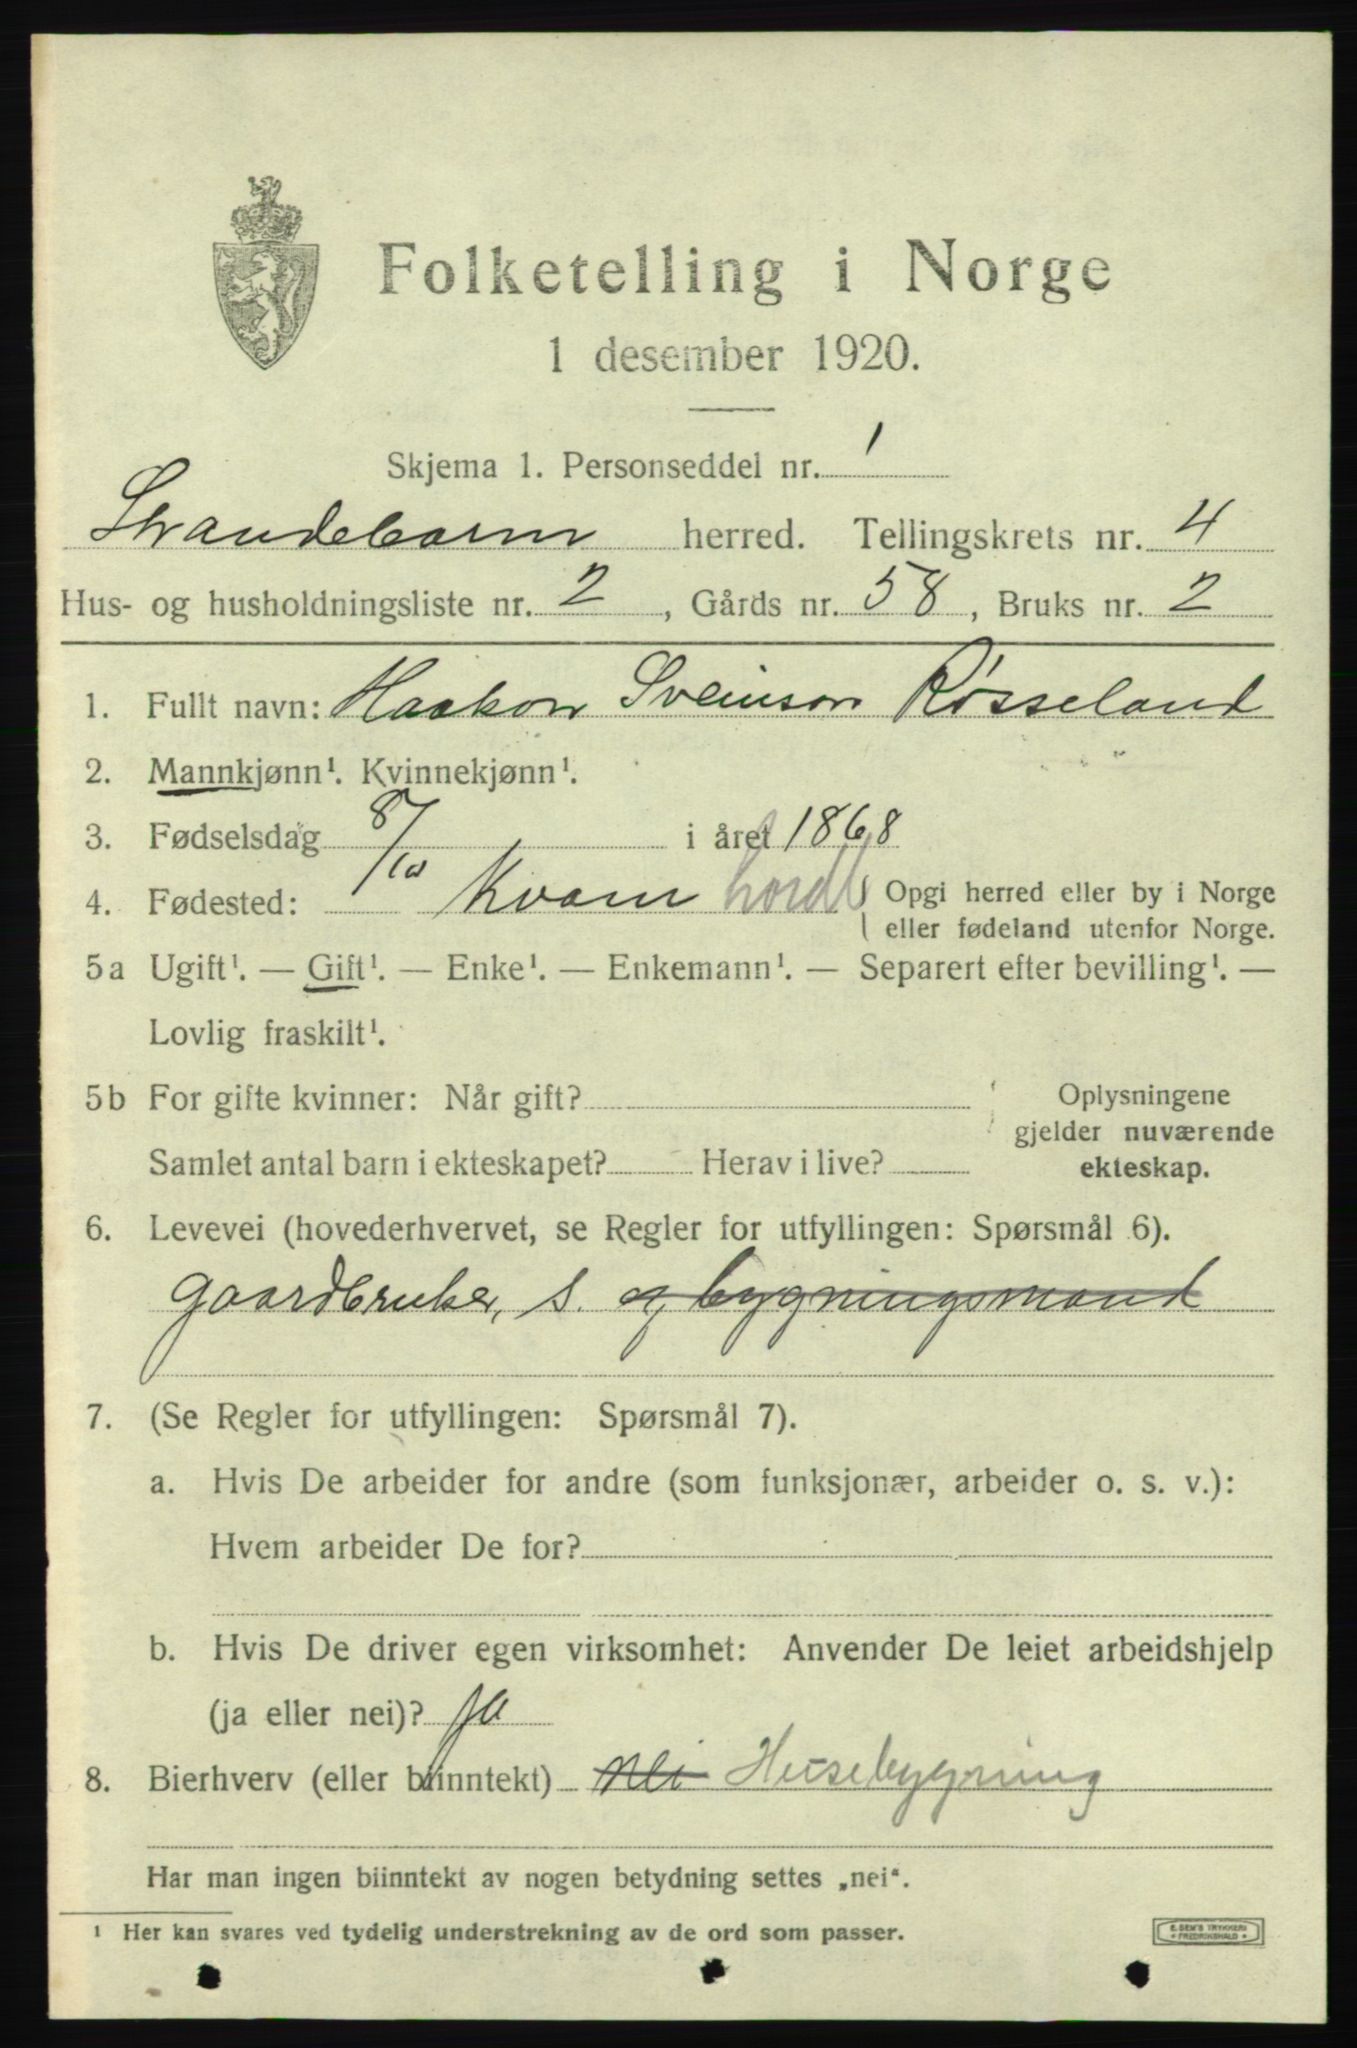 Folketelling i Norge
1 desember 1920.
Skjema 1. Personseddel nr. 1
Strandebarm herred. Tellingskrets nr. 4
Hus- og husholdningsliste nr. 2, Gårds nr. 58, Bruks nr. 2
1. Fullt navn: Haakon Sveinson Røsseland
2. Mannkjønn¹. Kvinnekjønn¹.
3. Fødselsdag 8/10 i året 1868
4. Fødested: Kvam hordl ( Opgi herred eller by i Norge
eller fødeland utenfor Norge.
5a Ugift¹. — Gift¹. — Enke¹. — Enkemann¹. — Separert efter bevilling¹. —
Lovlig fraskilt¹.
5b For gifte kvinner: Når gift? Oplysningene
gjelder nuværende
Samlet antal barn i ekteskapet? Herav i live? ekteskap.
6. Levevei (hovederhvervet, se Regler for utfyllingen: Spørsmål 6).
gaardbruker, s. og bygningsmand
7. (Se Regler for utfyllingen: Spørsmål 7).
a. Hvis De arbeider for andre (som funksjonær, arbeider o. s. v.):
Hvem arbeider De for?
b. Hvis De driver egen virksomhet: Anvender De leiet arbeidshjelp
(ja eller nei)? ja
8. Bierhverv (eller biinntekt) nei Husebygning
Har man ingen biinntekt av nogen betydning settes „nei“.
¹ Her kan svares ved tydelig understrekning av de ord som passer.
E. SEM'S TRYKKERI
FREDRIKSHALD